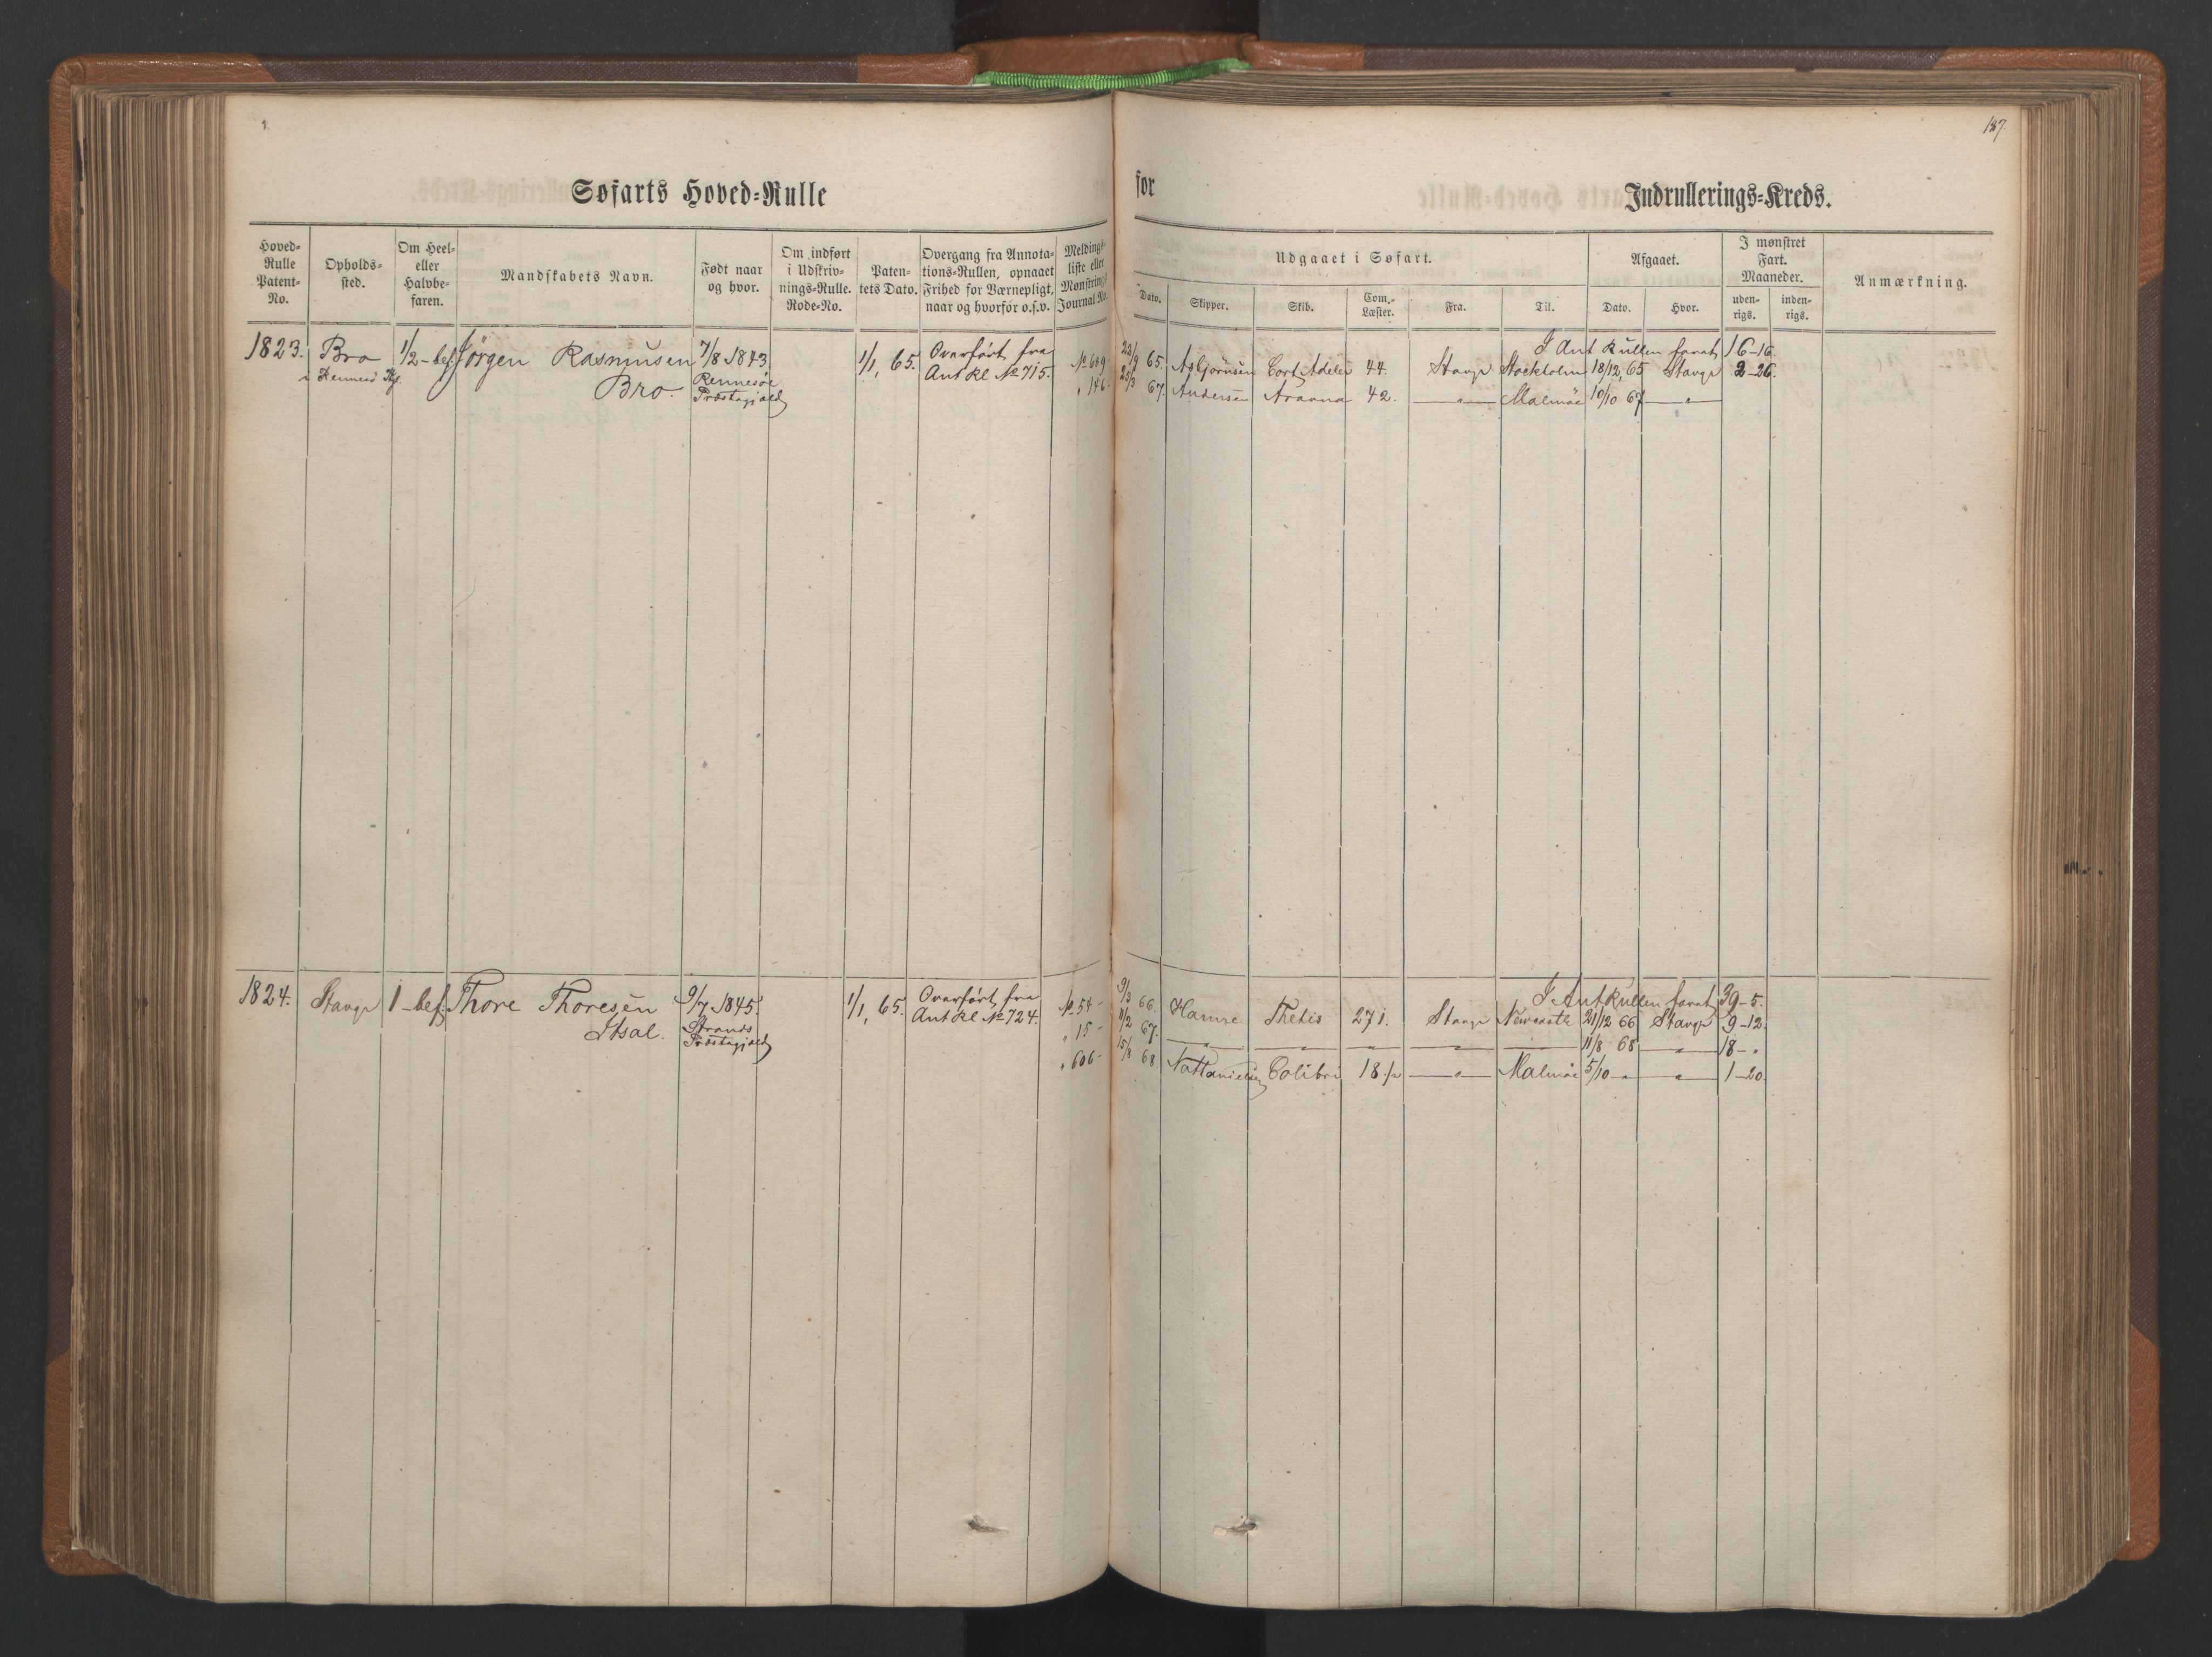 187
Søfarts Hoved-Rulle
for
Indrullerings-Kreds.
Hoved-Rulle Patent-No.
Opholds-sted.
Om Heel- eller Halvbe-faren.
Mandskabets Navn.
Født naar og hvor.
Om indført i Udskriv-nings-Rulle. Rode-No.
Paten-tets Dato.
Overgang fra Annota-tions-Rullen, opnaaet Frihed for Værnepligt, naar og hvorfor o.s.v.
Meldings-liste eller Mønstrings-Journal No.
Udgaaet i Søfart.
Dato.
Skipper.
Skib.
Com.-Læster.
Fra.
Til.
Afgaaet.
Dato.
Hvor.
I mønstret Fart. Maaneder.
uden-rigs.
inden-rigs.
Anmærkning.
1823. Bro 1/2-bef Jörgen Rasmusen 7/8 1843 1/1, 65. Overfört fra
i Rennesö Rennesöe Ant Rl No 715.
Bro. Præstegjæld
I Ant Rullen faret 16-16.
No 689 22/9 65. Asbjörnsen Cort Adeler 44. Stavgr Stockholm 18/12, 65 Stavgr 2-26.
" 146 23/3 67. Andersen 42. — " — Malmöe 10/10 67 — " —
1824. Stavgr 1-bef. Thore Thoresen 9/7 1845. 1/1, 65. Overfört fra
Strands Ant Rl No 724.
Præstegjæld
I Ant Rullen faret 39-5.
No 54- 9/3 66. Hamre Thetis 271. Stavgr Newcastle 21/12 66 Stavgr 9-12.
" 15- 1/2 67. — " — — " — — " — — " — 11/8 68 — " — 18- "
" 606- 15/8 68 Nathanielsen Colibri 18 1/2 — " — Malmöe 5/10 " — " — 1-20.